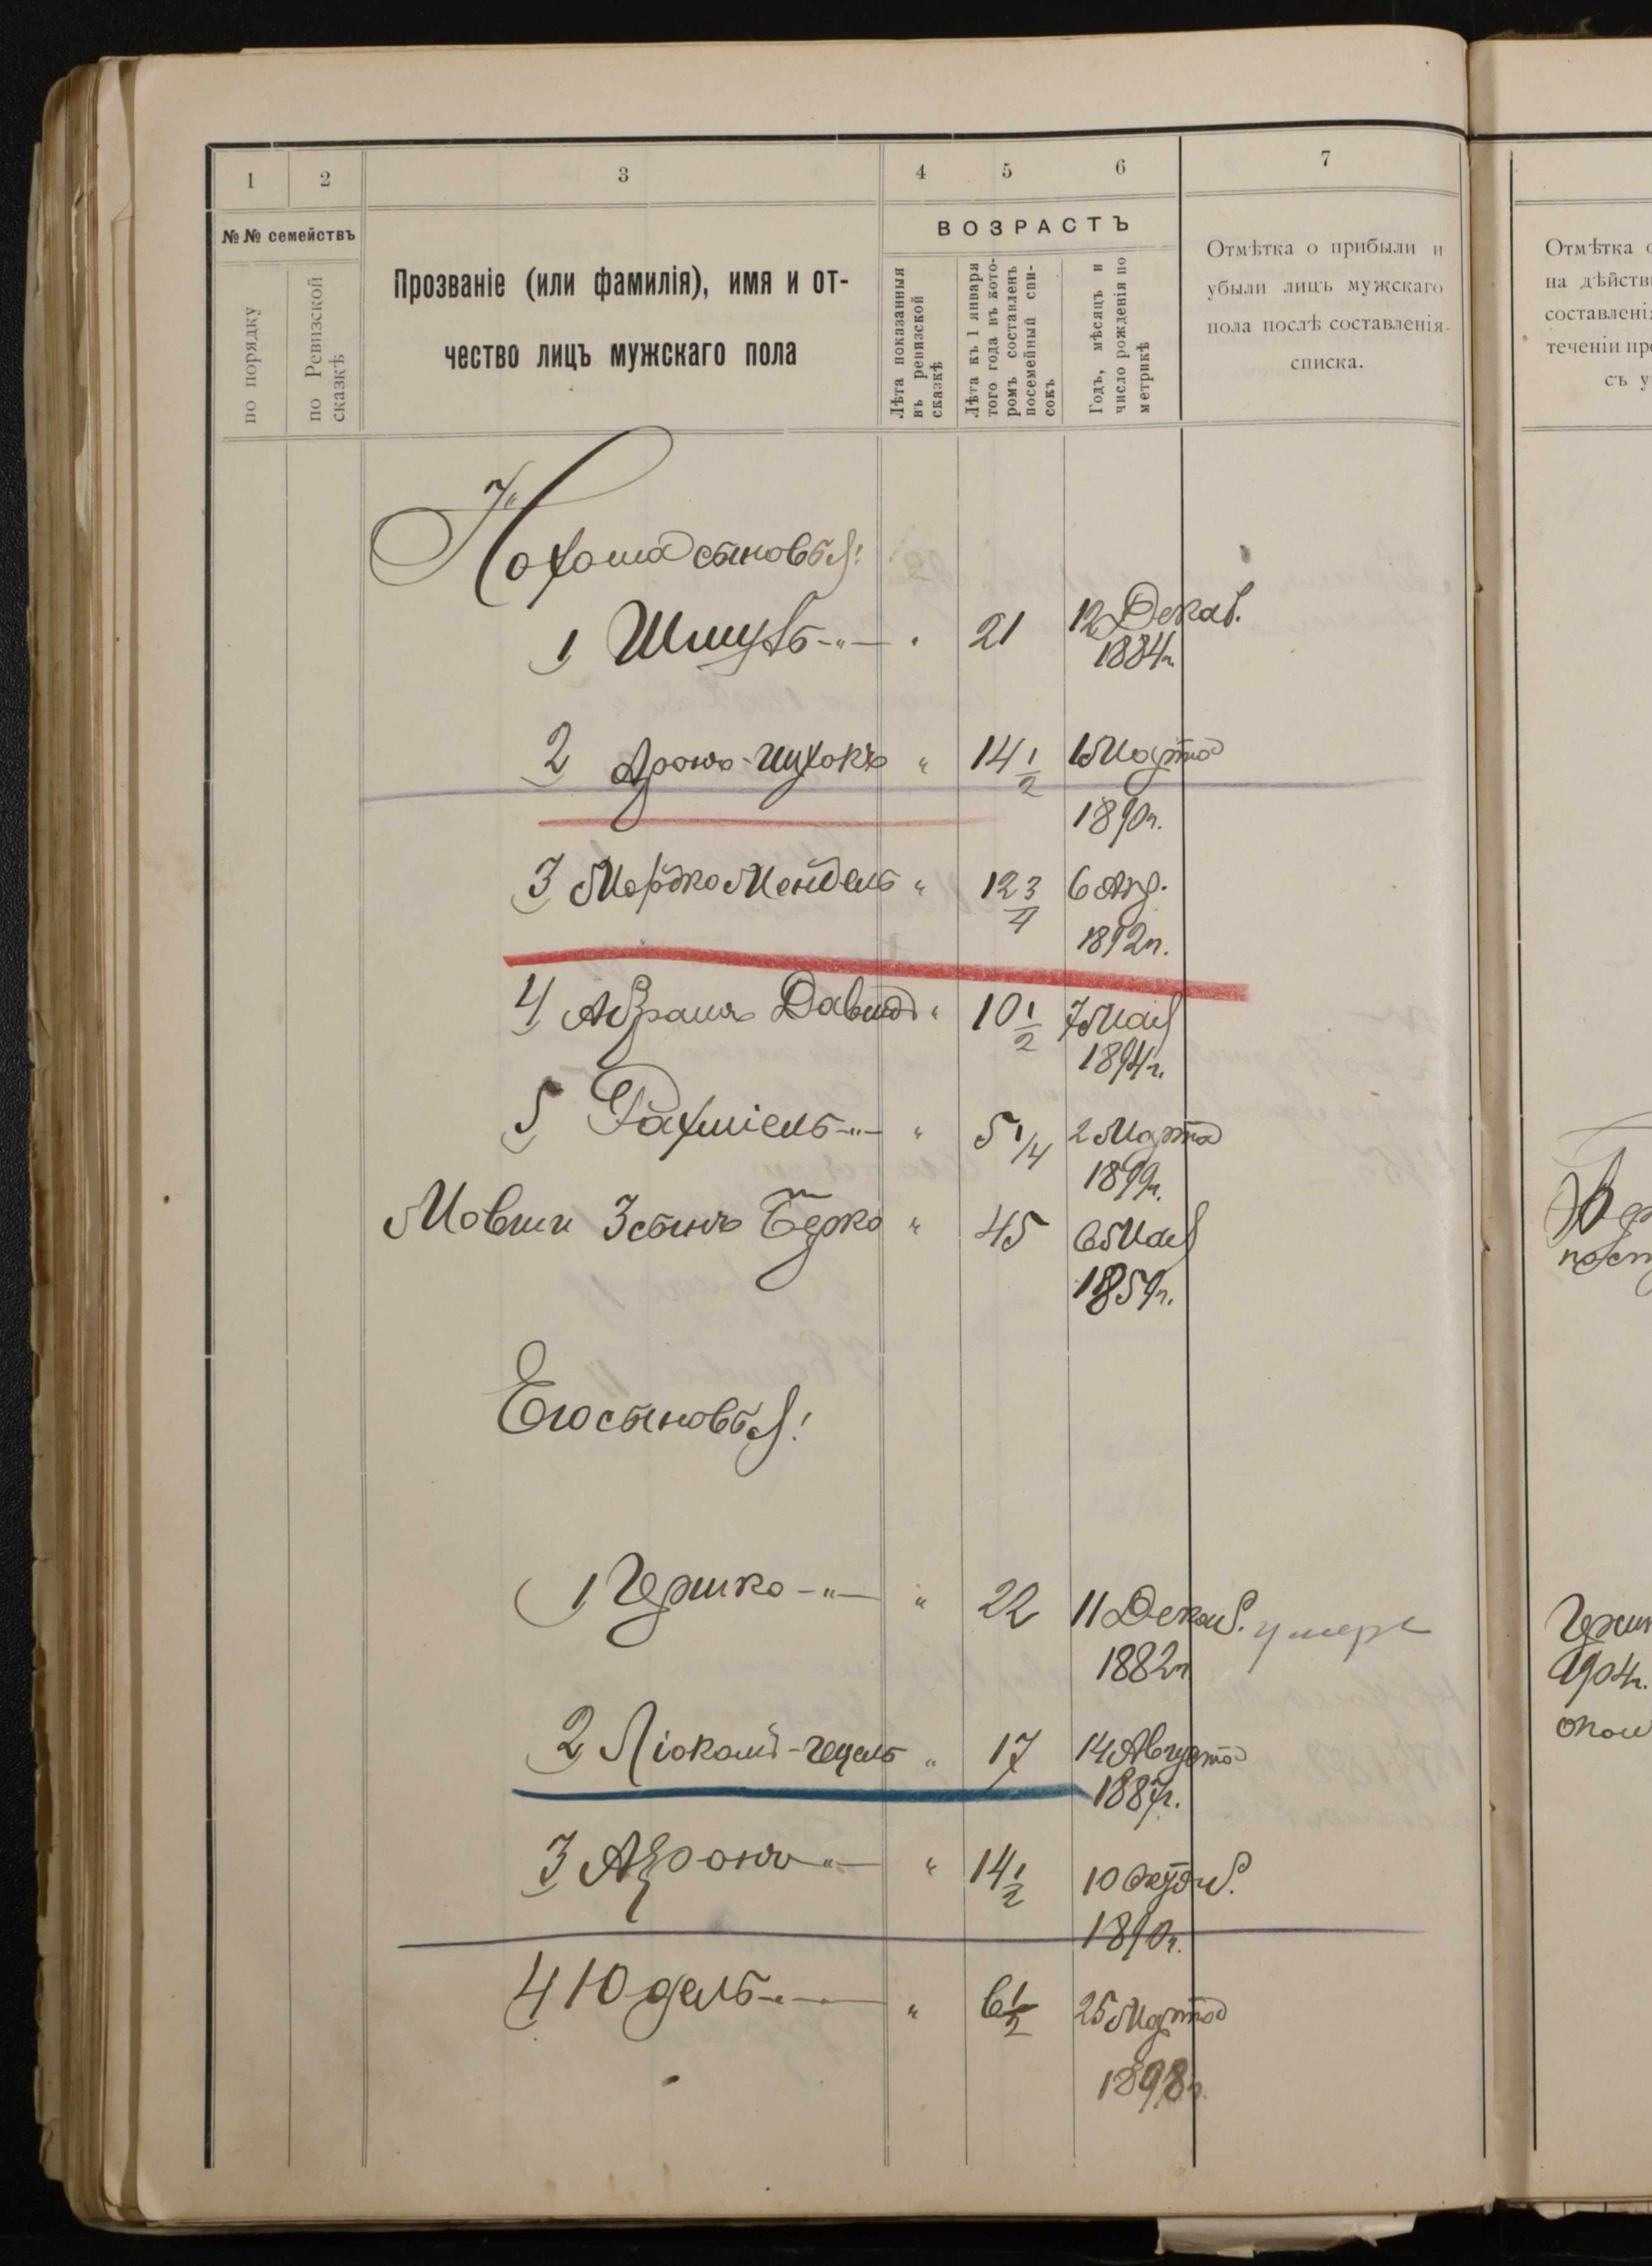 1 2 3 4 5 6 7
№№ семействъ
по порядку
по Ревизской сказкѣ
Прозваніе (или фамилія), имя и от-
чество лицъ мужскаго пола
ВОЗРАСТЪ
Лѣта показанныя
въ ревизской
сказкѣ
Лѣта къ 1 января
того года въ кото-
ромъ составленъ
посемейный спи-
сокъ
Годъ, мѣсяцъ и
число рожденія по
метрикѣ
Отмѣтка о прибыли и
убыли лицъ мужскаго
пола послѣ составленія
списка.
сыновья:
1 Шмуль " 21 12 Декаб.
1884г.
2 Аронъ-Ицхокъ " 14 1/2 Марта
1890г.
3 Мордко Мендель " 12 3/4 6 Апр.
1892г.
4 Абрамъ Давидъ " 10 1/2 7 Мая
1894г.
5 Рахміель " 5 1/4 2 Марта
1899г.
Мовши 3 сынъ Берко " 45 6 Мая
1859г.
Его сыновья:
1 Гершко " 22 11 Декаб. умеръ
1882г.
2 17 14 Августа
1887г.
3 Аронъ " 14 1/2 10 Октяб.
1890г.
4 Юдель " 6 1/2 25 Марта
1898г.
Отмѣтка
на дѣйств
составлені
теченіи пр
съ у
1904г.